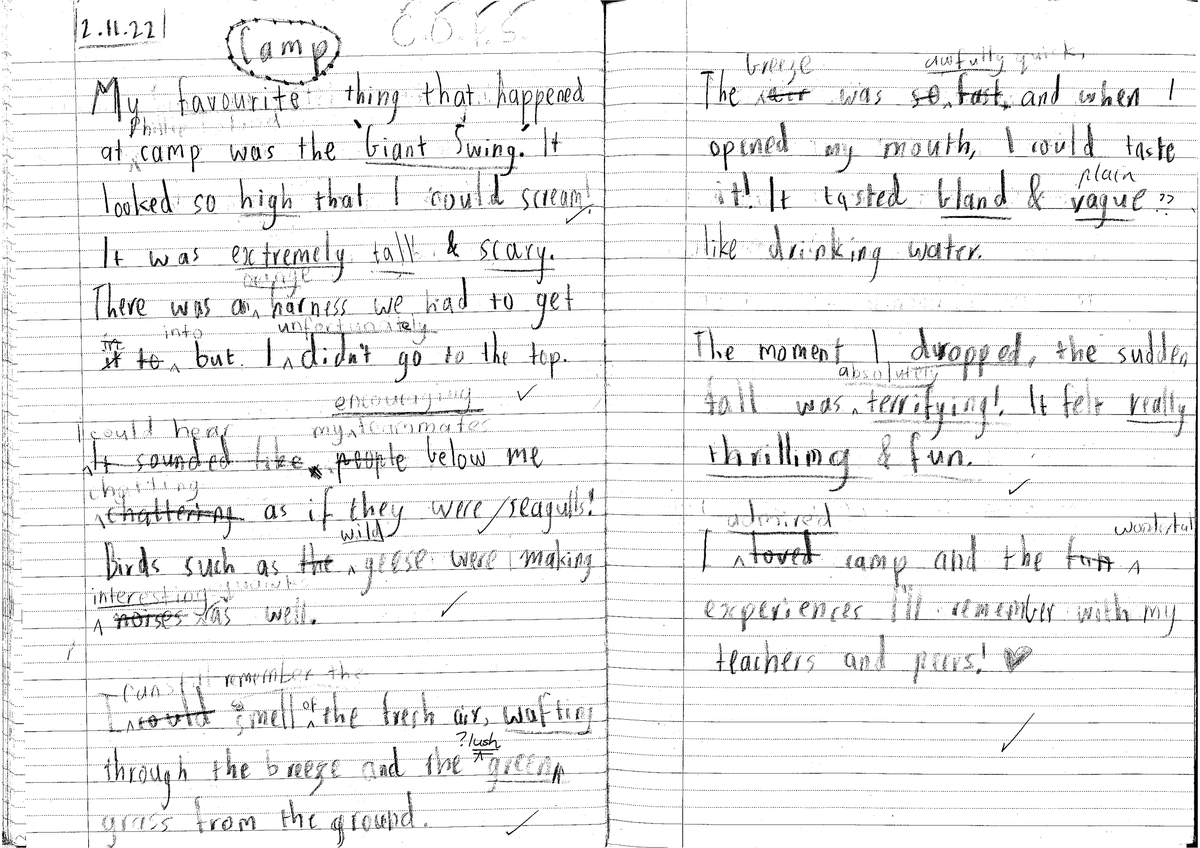 2.11.22
Camp
My favourite thing that happened
Philip
at camp was the 'Giant Swing.' It
looked so high that I could scream!
It was extremely tall & scary.
orange
There was an harness we had to get
into unfortunately
it to but I didn't go to the top.
encouraging
I could hear my teammates
It sounded like people below me
chatting
chattering as if they were seagulls!
wild
Birds such as the geese were making
interesting
noises as well.
I can still remember the
I could smell of the fresh air, wafting
? lush
through the breeze and the green
grass from the ground.
breeze awfully quick,
The air was so fast, and when I
opened my mouth, I could taste
plain
it! It tasted bland & vague ??
like drinking water.
The moment I dropped, the sudden
absolutely
fall was terrifying! It felt really
thrilling & fun.
admired wonderful
I loved camp and the fun
experiences I'll remember with my
teachers and peers!